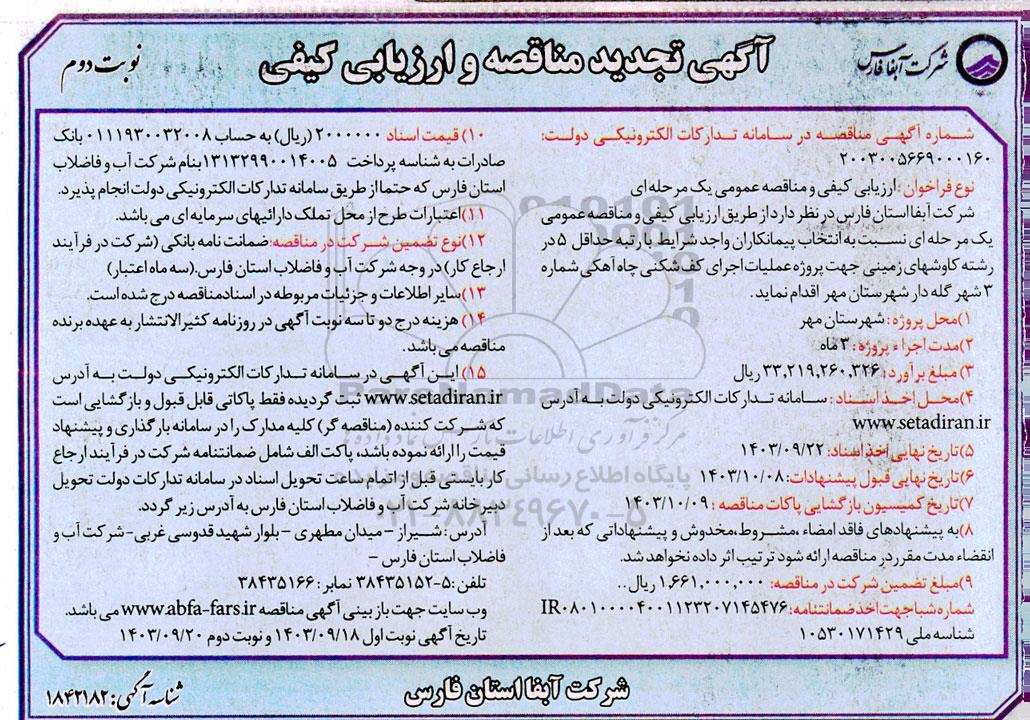 شرکت آبفا فارس
آگهی تجدید مناقصه و ارزیابی کیفی
نوبت دوم
شماره آگهی مناقصه در سامانه تدارکات الکترونیکی دولت:
۲۰۰۳۰۰۵۶۶۹۰۰۰۱۶۰
نوع فراخوان: ارزیابی کیفی و مناقصه عمومی یک مرحله ای
شرکت آبفا استان فارس در نظر دارد از طریق ارزیابی کیفی و مناقصه عمومی
یک مرحله ای نسبت به انتخاب پیمانکاران واجد شرایط با رتبه حداقل ۵ در
رشته کاوشهای زمینی جهت پروژه عملیات اجرای کف شکنی چاه آهکی شماره
۳ شهر گله دار شهرستان مهر اقدام نماید.
۱) محل پروژه: شهرستان مهر
۲) مدت اجراء پروژه: ۳ ماه
۳) مبلغ برآورد: ۳۳,۲۱۹,۲۶۰,۳۲۶ ریال
۴) محل اخذ اسناد: سامانه تدارکات الکترونیکی دولت به آدرس
www.setadiran.ir
۵) تاریخ نهایی اخذ اسناد: ۱۴۰۳/۰۹/۲۲
۶) تاریخ نهایی قبول پیشنهادات: ۱۴۰۳/۱۰/۰۸
۷) تاریخ کمیسیون بازگشایی پاکات مناقصه: ۱۴۰۳/۱۰/۰۹
۸) به پیشنهادهای فاقد امضاء، مشروط، مخدوش و پیشنهاداتی که بعد از
انقضاء مدت مقرر در مناقصه ارائه شود ترتیب اثر داده نخواهد شد.
۹) مبلغ تضمین شرکت در مناقصه: ۱,۶۶۱,۰۰۰,۰۰۰ ریال..
شماره شبا جهت اخذ ضمانتنامه: IR۰۸۰۱۰۰۰۰۴۰۰۱۱۲۳۲۰۷۱۴۵۴۷۶
شناسه ملی ۱۰۵۳۰۱۷۱۴۲۹
۱۰) قیمت اسناد ۲۰۰۰۰۰۰ (ریال) به حساب ۰۱۱۱۹۳۰۰۳۲۰۰۸ بانک
صادرات به شناسه پرداخت ۱۳۱۳۲۹۹۰۰۱۴۰۰۵ بنام شرکت آب و فاضلاب
استان فارس که حتما از طریق سامانه تدارکات الکترونیکی دولت انجام پذیرد.
۱۱) اعتبارات طرح از محل تملک دارائیهای سرمایه ای می باشد.
۱۲) نوع تضمین شرکت در مناقصه: ضمانت نامه بانکی (شرکت در فرآیند
ارجاع کار) در وجه شرکت آب و فاضلاب استان فارس. (سه ماه اعتبار)
۱۳) سایر اطلاعات و جزئیات مربوطه در اسناد مناقصه درج شده است.
۱۴) هزینه درج دو تا سه نوبت آگهی در روزنامه کثیرالانتشار به عهده برنده
مناقصه می باشد.
۱۵) این آگهی در سامانه تدارکات الکترونیکی دولت به آدرس
www.setadiran.ir ثبت گردیده فقط پاکاتی قابل قبول و بازگشایی است
که شرکت کننده (مناقصه گر) کلیه مدارک را در سامانه بارگذاری و پیشنهاد
قیمت را ارائه نموده باشد، پاکت الف شامل ضمانتنامه شرکت در فرآیند ارجاع
کار بایستی قبل از اتمام ساعت تحویل اسناد در سامانه تدارکات دولت تحویل
دبیرخانه شرکت آب و فاضلاب استان فارس به آدرس زیر گردد.
آدرس: شیراز – میدان مطهری – بلوار شهید قدوسی غربی- شرکت آب و
فاضلاب استان فارس –
تلفن: ۵-۳۸۴۳۵۱۵۲ نمابر: ۳۸۴۳۵۱۶۶
وب سایت جهت بازبینی آگهی مناقصه www.abfa-fars.ir می باشد.
تاریخ آگهی نوبت اول ۱۴۰۳/۰۹/۱۸ و نوبت دوم ۱۴۰۳/۰۹/۲۰
شرکت آبفا استان فارس
شناسه آگهی: ۱۸۴۲۱۸۲